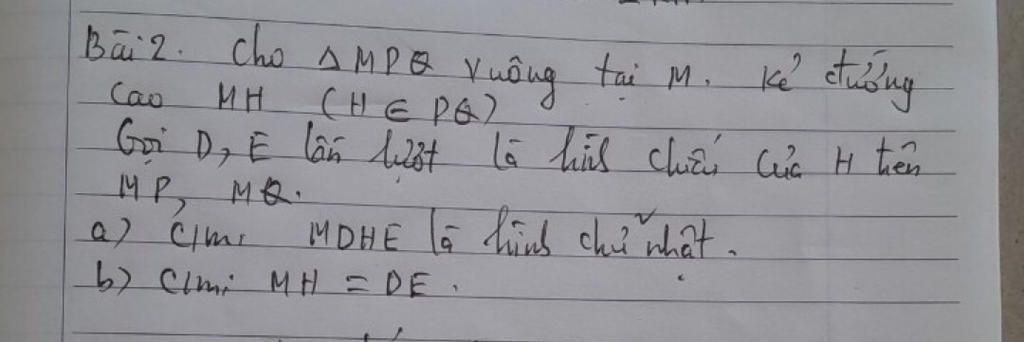 Bài 2. Cho △MPQ vuông tại M. Kẻ đường
cao MH (H ∈ PQ)
Gọi D, E lần lượt là hình chiếu của H trên
MP, MQ.
a) C/m: MDHE là hình chữ nhật.
b) C/m: MH = DE.